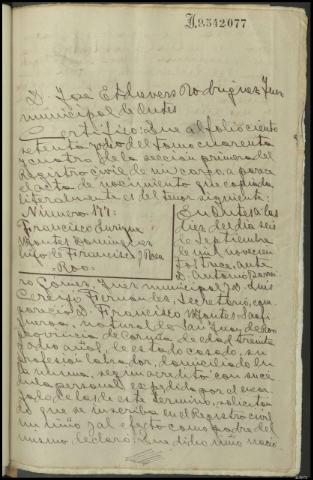 J.9542077
D. José E. Rodríguez Juez
municipal de Outes
Certifico: Que al folio ciento
setenta y ocho del tomo cuarenta
y cuatro de la sección primera del
Registro civil de mi cargo, aparece
el acta de nacimiento que copiada
literalmente es del tenor siguiente:
Número 177:
Francisco Enrique
Montes Dominguez
hijo de Francisco y Rosa
En Outes a las
diez del día seis
de Septiembre
de mil novecien
tos trece, ante
D. Antonio
Juez municipal y D. Luis
Cerezo Fernandez, Secretario, com
pareció D. Francisco Montes
natural de San Juan de
provincia de Coruña, de edad treinta
y ocho años, de estado casado, su
profesión labrador, domiciliado en
la misma, según acreditó con su cé
dula personal expedida por el encar
gado de las de este término, solicitan
do que se inscriba en el Registro civil
un niño y al efecto como padre del
mismo declaró: Que dicho niño nació